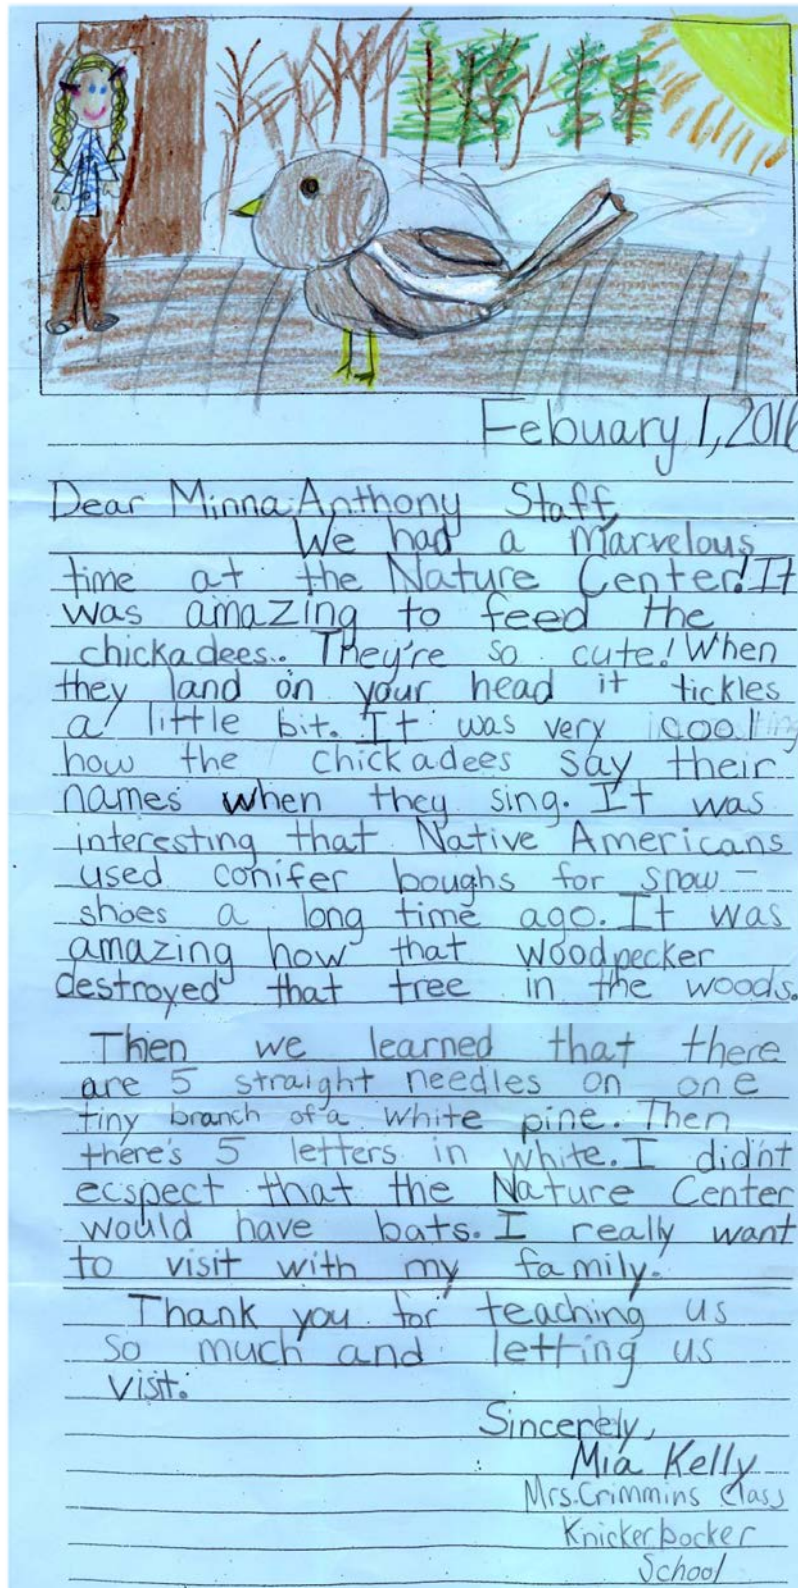 Febuary 1, 2016
Dear Minna Anthony Staff,
We had a marvelous
time at the Nature Center! It
was amazing to feed the
chickadees. They're so cute! When
they land on your head it tickles
a little bit. It was very cool
how the chickadees say their
names when they sing. It was
interesting that Native Americans
used conifer boughs for snow-
shoes a long time ago. It was
amazing how that woodpecker
destroyed that tree in the woods.
Then we learned that there
are 5 straight needles on one
tiny branch of a white pine. Then
there's 5 letters in white. I didn't
ecspect that the Nature Center
would have bats. I really want
to visit with my family.
Thank you for teaching us
so much and letting us
visit.
Sincerely,
Mia Kelly
Mrs. Crimmins Class
Knickerbocker
School